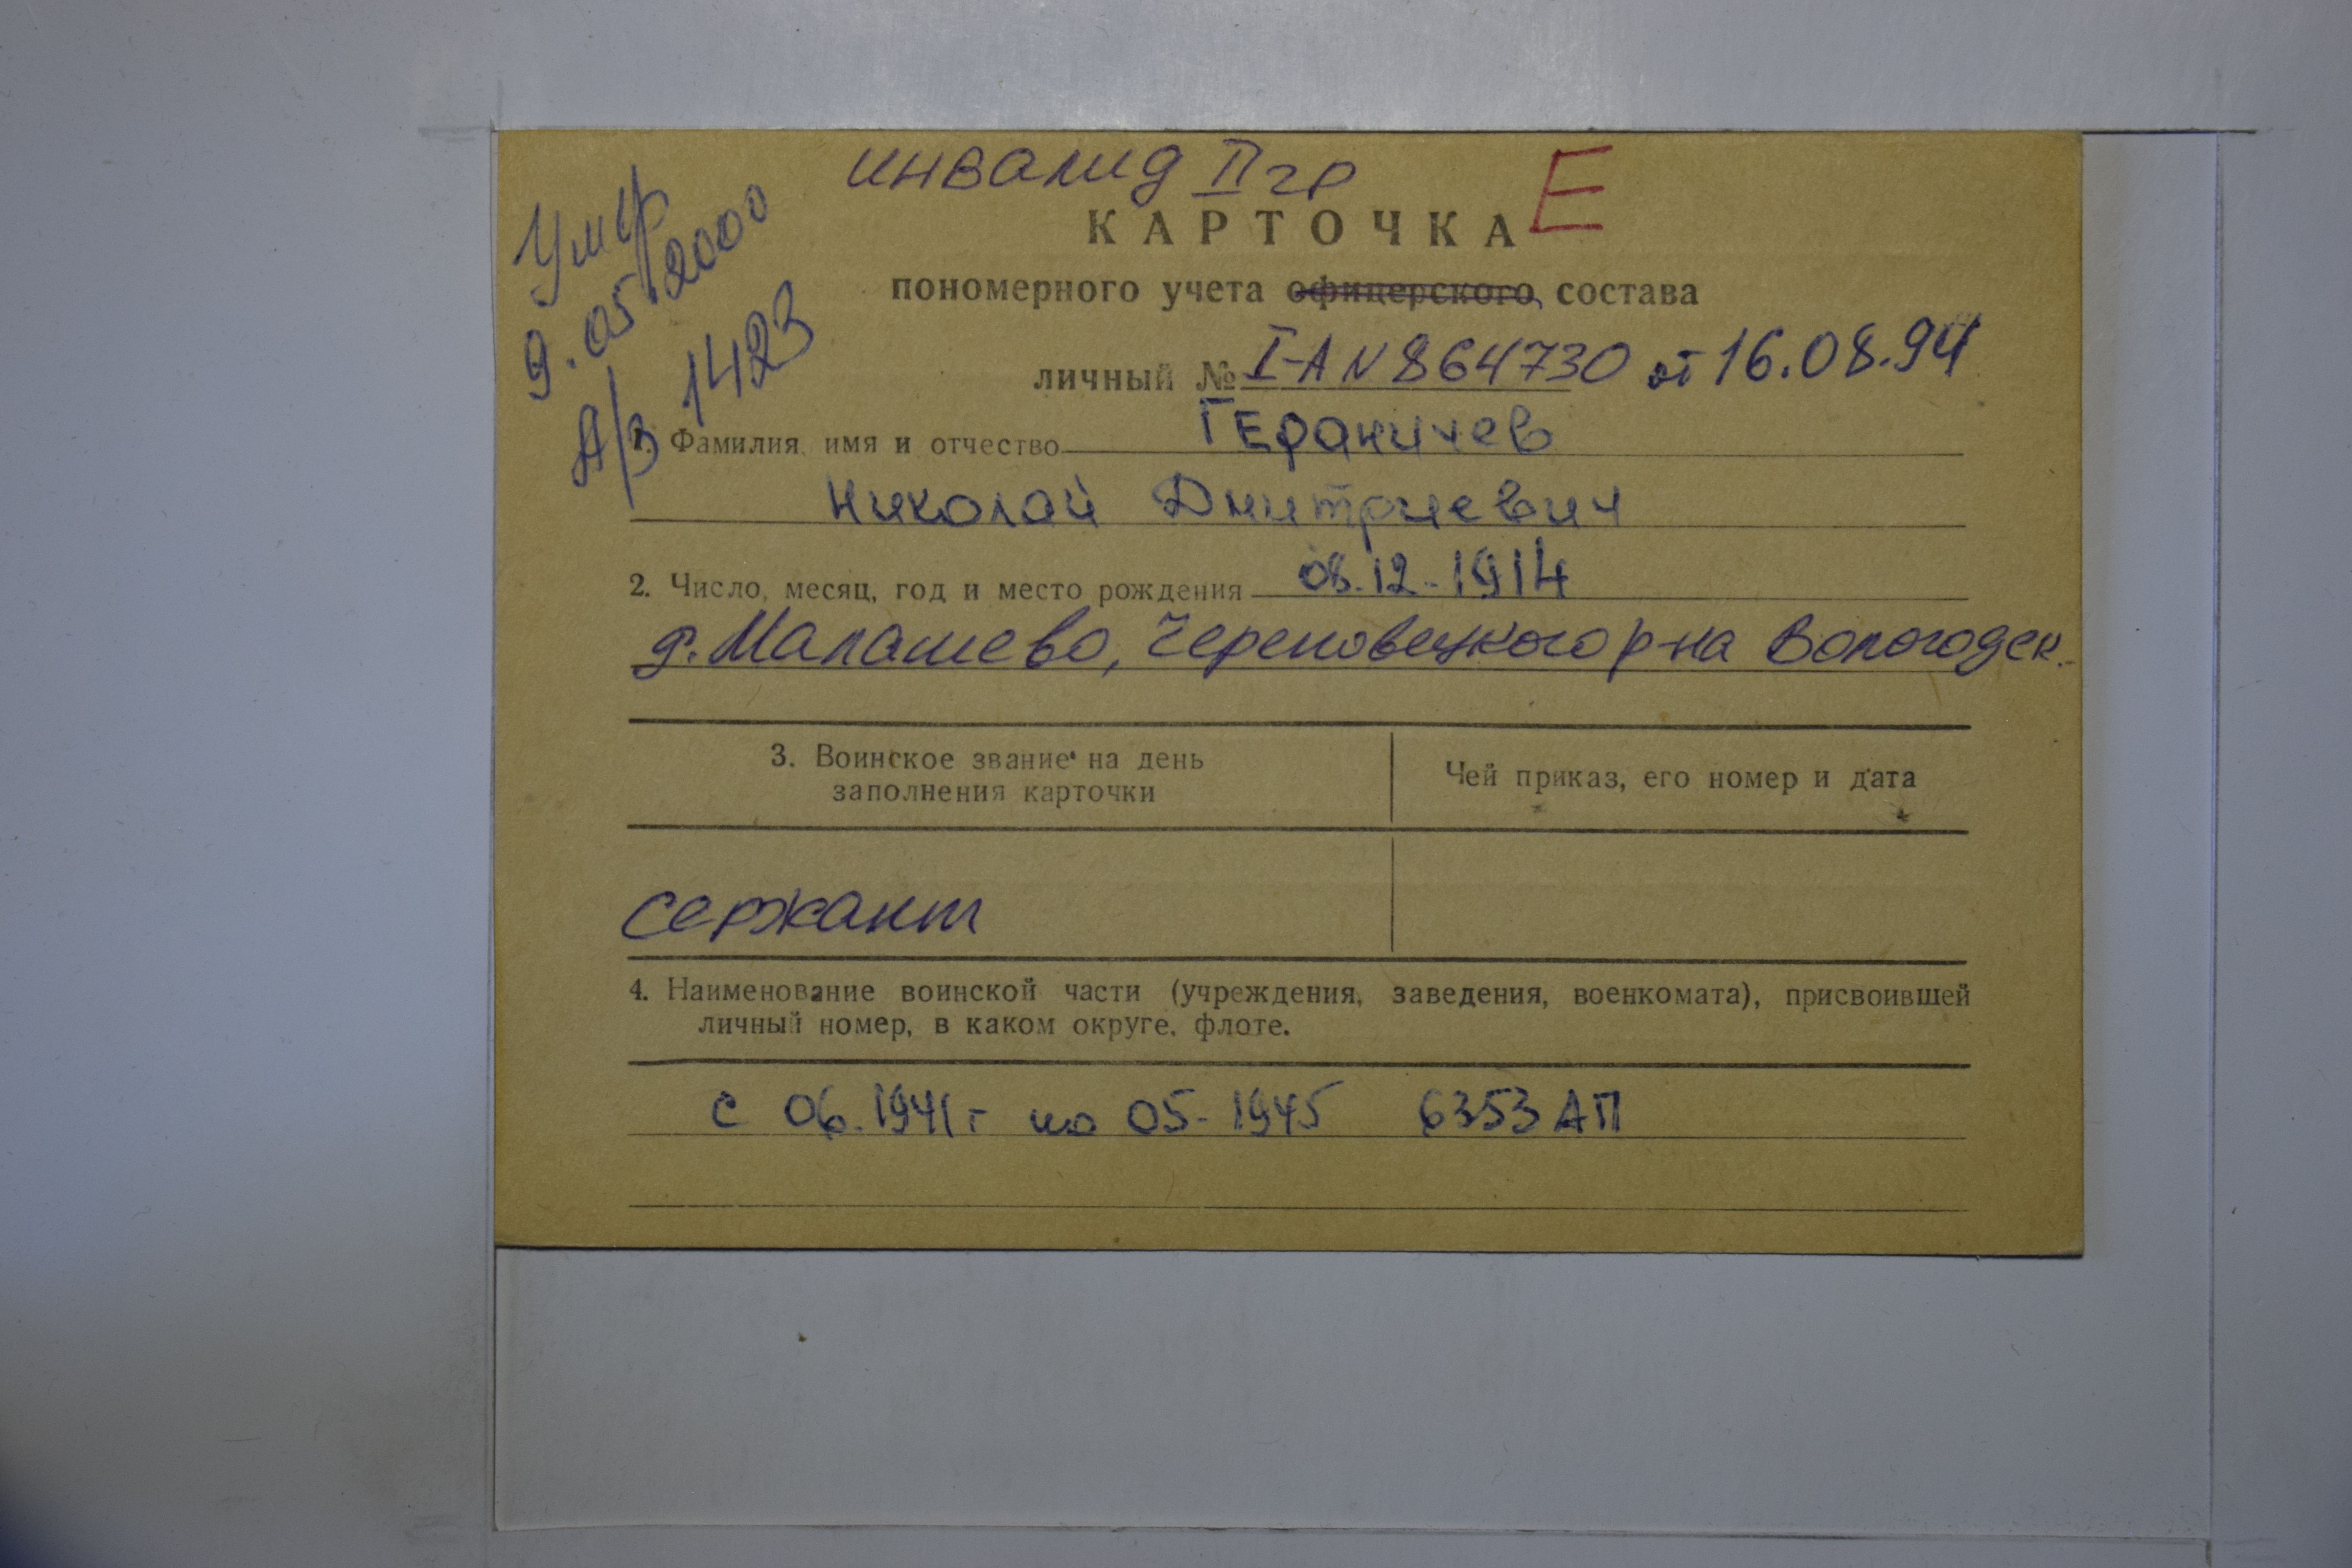 инвалид II гр
Е
Умер
9.05.2000
А/з 1423
КАРТОЧКА
пономерного учета офицерского состава
личный № I-А N 864730 от 16.08.94
1. Фамилия, имя и отчество Гераничев
Николай Дмитриевич
2. Число, месяц, год и место рождения 08.12-1914
д. Малашево, Череповецкого р-на Вологодск.
3. Воинское звание на день
заполнения карточки
Чей приказ, его номер и дата
сержант
4. Наименование воинской части (учреждения, заведения, военкомата), присвоившей
личный номер, в каком округе, флоте.
с 06.1941г по 05-1945 6353 АП